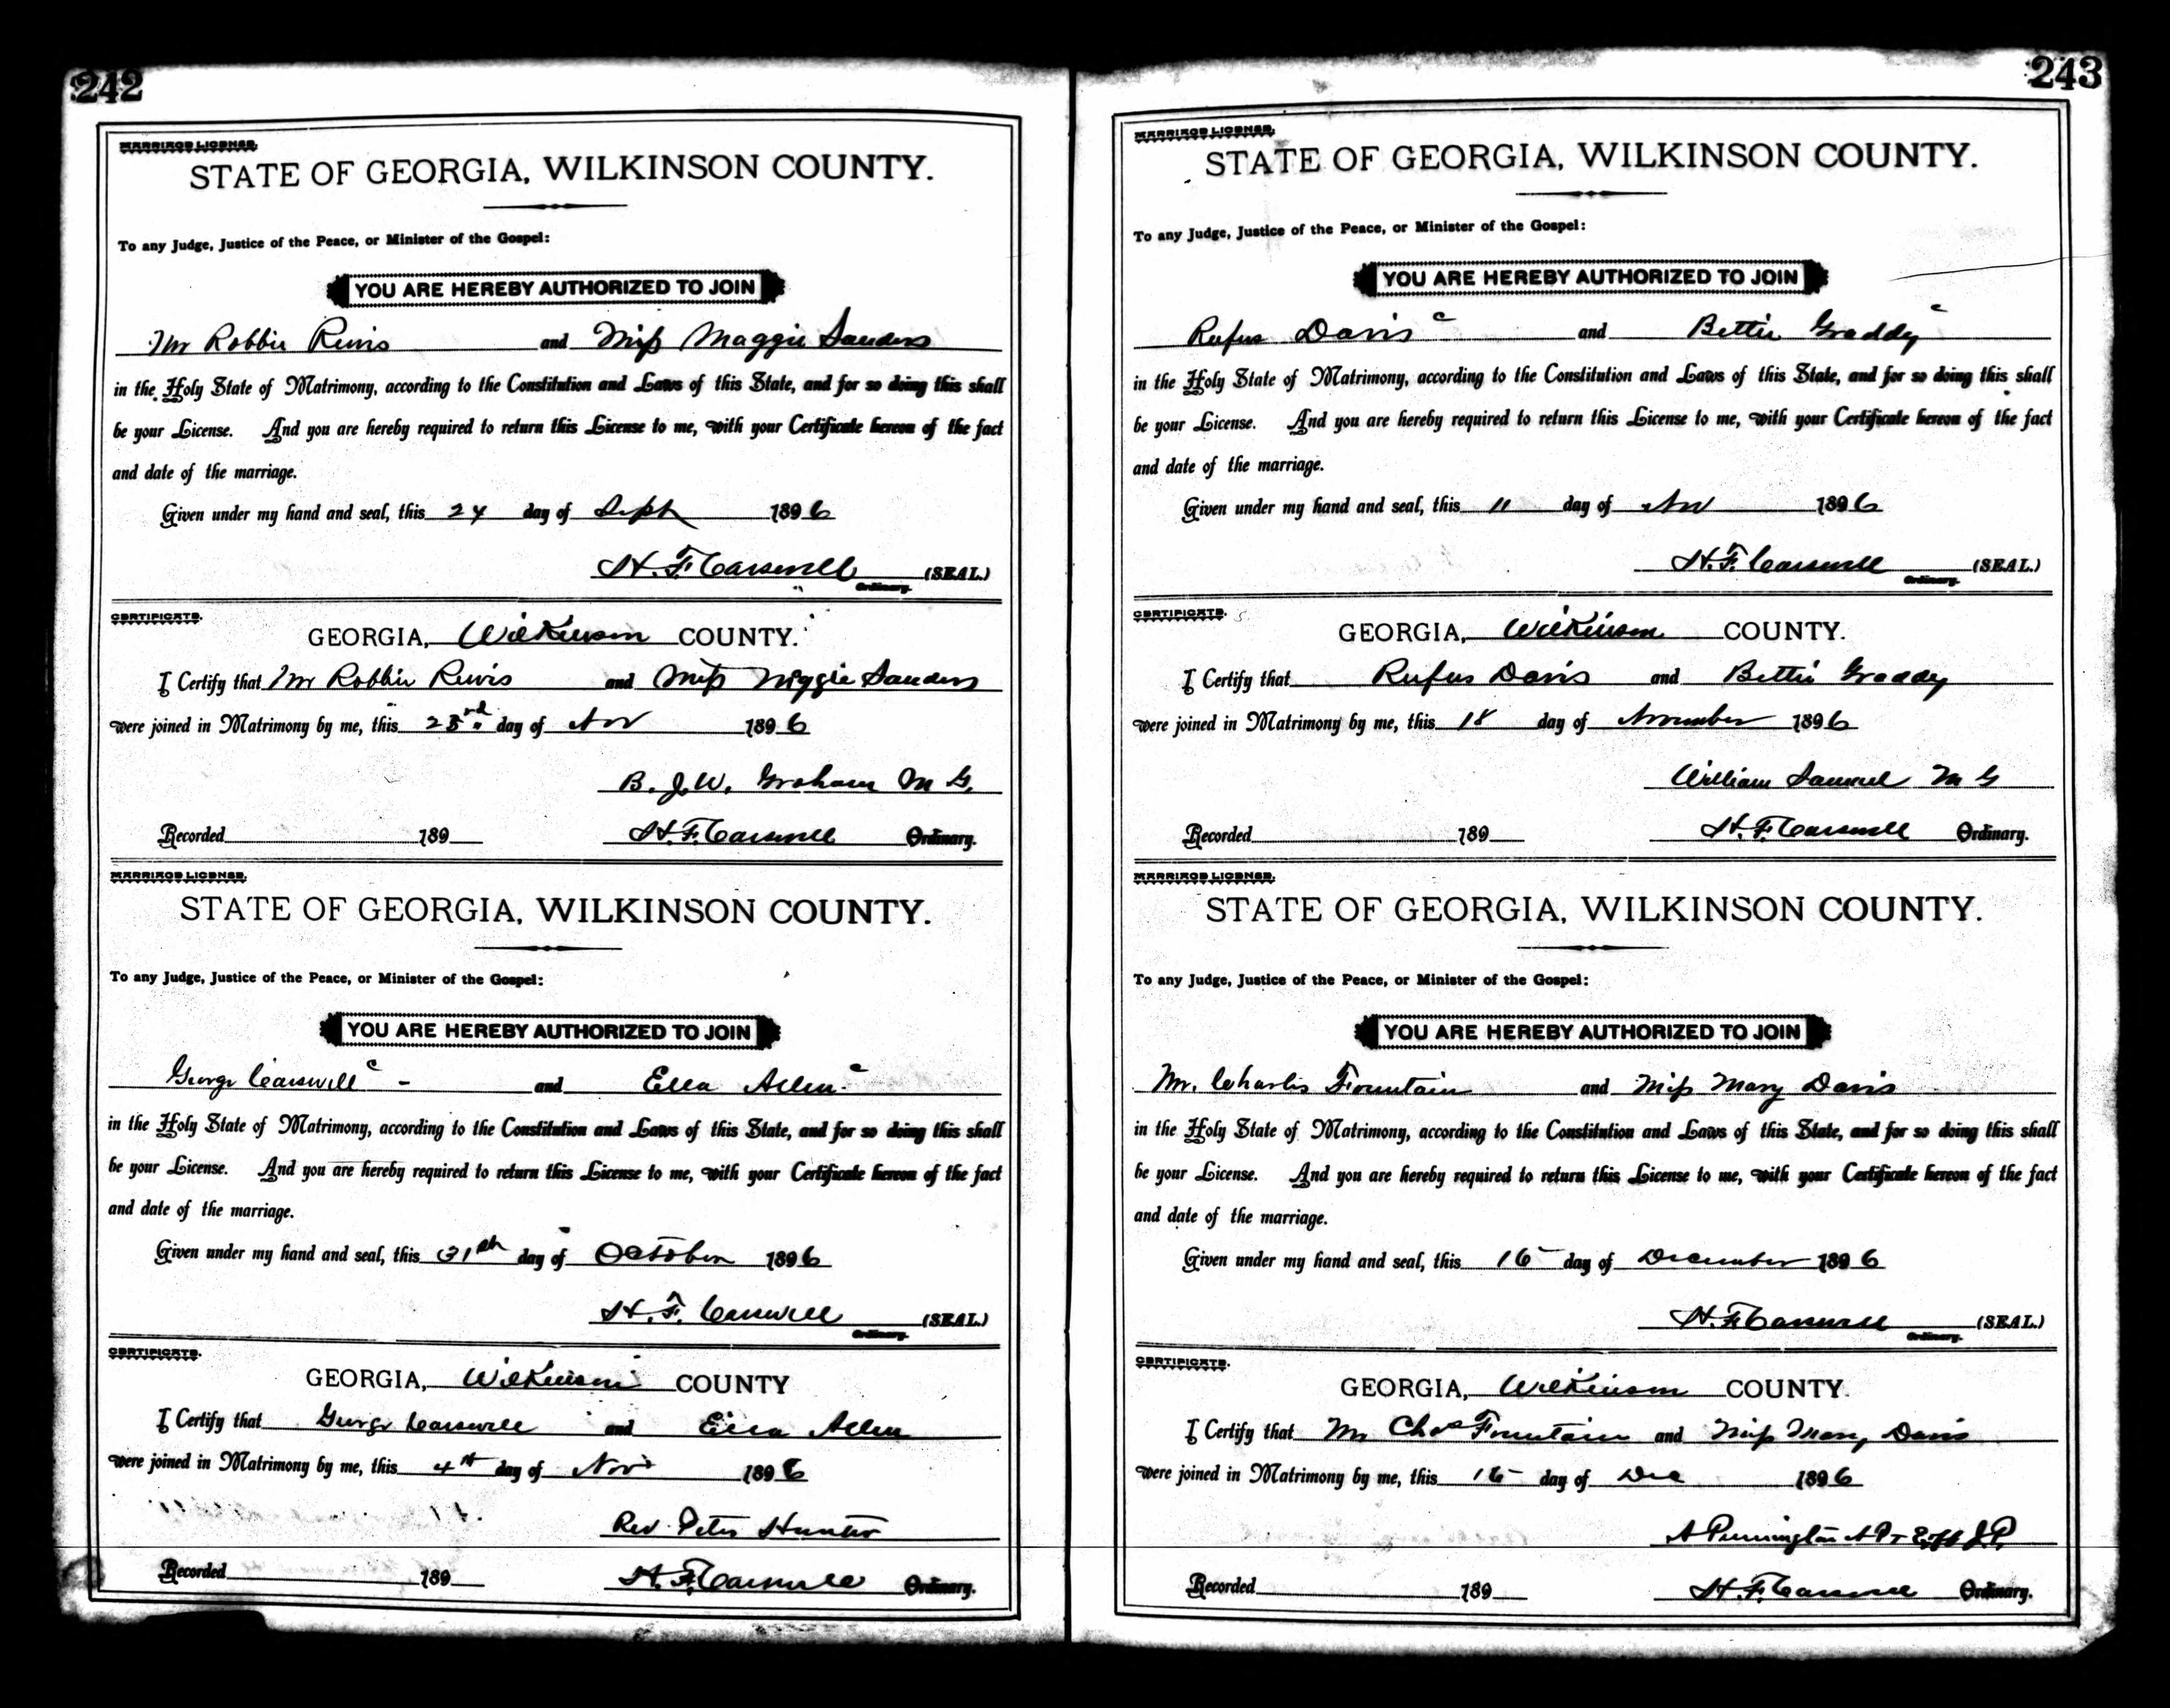 242
MARRIAGE LICENSE.
STATE OF GEORGIA, WILKINSON COUNTY.
To any Judge, Justice of the Peace, or Minister of the Gospel:
YOU ARE HEREBY AUTHORIZED TO JOIN
Mr Robbie Rivis and Miss Maggie Sanders
in the Holy State of Matrimony, according to the Constitution and Laws of this State, and for so doing this shall
be your License. And you are hereby required to return this License to me, with your Certificate hereon of the fact
and date of the marriage.
Given under my hand and seal, this 24 day of Sept 1896
H. F. Carswell (SEAL.)
Ordinary.
CERTIFICATE.
GEORGIA, Wilkinson COUNTY.
I Certify that Mr Robbie Rivis and Miss Sanders
were joined in Matrimony by me, this day of Nov 1896
B. J. W. Graham M G.
Recorded 189 H. F. Carswell Ordinary.
MARRIAGE LICENSE.
STATE OF GEORGIA, WILKINSON COUNTY.
To any Judge, Justice of the Peace, or Minister of the Gospel:
YOU ARE HEREBY AUTHORIZED TO JOIN
George Carswell c - and Ella Allen c
in the Holy State of Matrimony, according to the Constitution and Laws of this State, and for so doing this shall
be your License. And you are hereby required to return this License to me, with your Certificate hereon of the fact
and date of the marriage.
Given under my hand and seal, this 31th day of October 1896
H. F. Carswell (SEAL.)
Ordinary.
CERTIFICATE.
GEORGIA, Wilkinson COUNTY
I Certify that George Carswell and Ella Allen
were joined in Matrimony by me, this 4th day of Nov 1896
Rev. Peter Hunter
Recorded 189 H. F. Carswell Ordinary.
243
MARRIAGE LICENSE.
STATE OF GEORGIA, WILKINSON COUNTY.
To any Judge, Justice of the Peace, or Minister of the Gospel:
YOU ARE HEREBY AUTHORIZED TO JOIN
Rufus Davis c and Bettie Graddy c
in the Holy State of Matrimony, according to the Constitution and Laws of this State, and for so doing this shall
be your License. And you are hereby required to return this License to me, with your Certificate hereon of the fact
and date of the marriage.
Given under my hand and seal, this 11 day of Nov 1896
H. F. Carswell (SEAL.)
Ordinary.
CERTIFICATE.
GEORGIA, Wilkinson COUNTY.
I Certify that Rufus Davis and Bettie Graddy
were joined in Matrimony by me, this 18 day of November 1896
William Samuel M G
Recorded 189 H. F. Carswell Ordinary.
MARRIAGE LICENSE.
STATE OF GEORGIA, WILKINSON COUNTY.
To any Judge, Justice of the Peace, or Minister of the Gospel:
YOU ARE HEREBY AUTHORIZED TO JOIN
Mr. Charles Fountain and Miss Mary Davis
in the Holy State of Matrimony, according to the Constitution and Laws of this State, and for so doing this shall
be your License. And you are hereby required to return this License to me, with your Certificate hereon of the fact
and date of the marriage.
Given under my hand and seal, this 16 day of December 1896
H. F. Carswell (SEAL.)
Ordinary.
CERTIFICATE.
GEORGIA, Wilkinson COUNTY.
I Certify that Mr Chas Fountain and Miss Mary Davis
were joined in Matrimony by me, this 16 day of Dec 1896
A Pennington J.P.
Recorded 189 H. F. Carswell Ordinary.